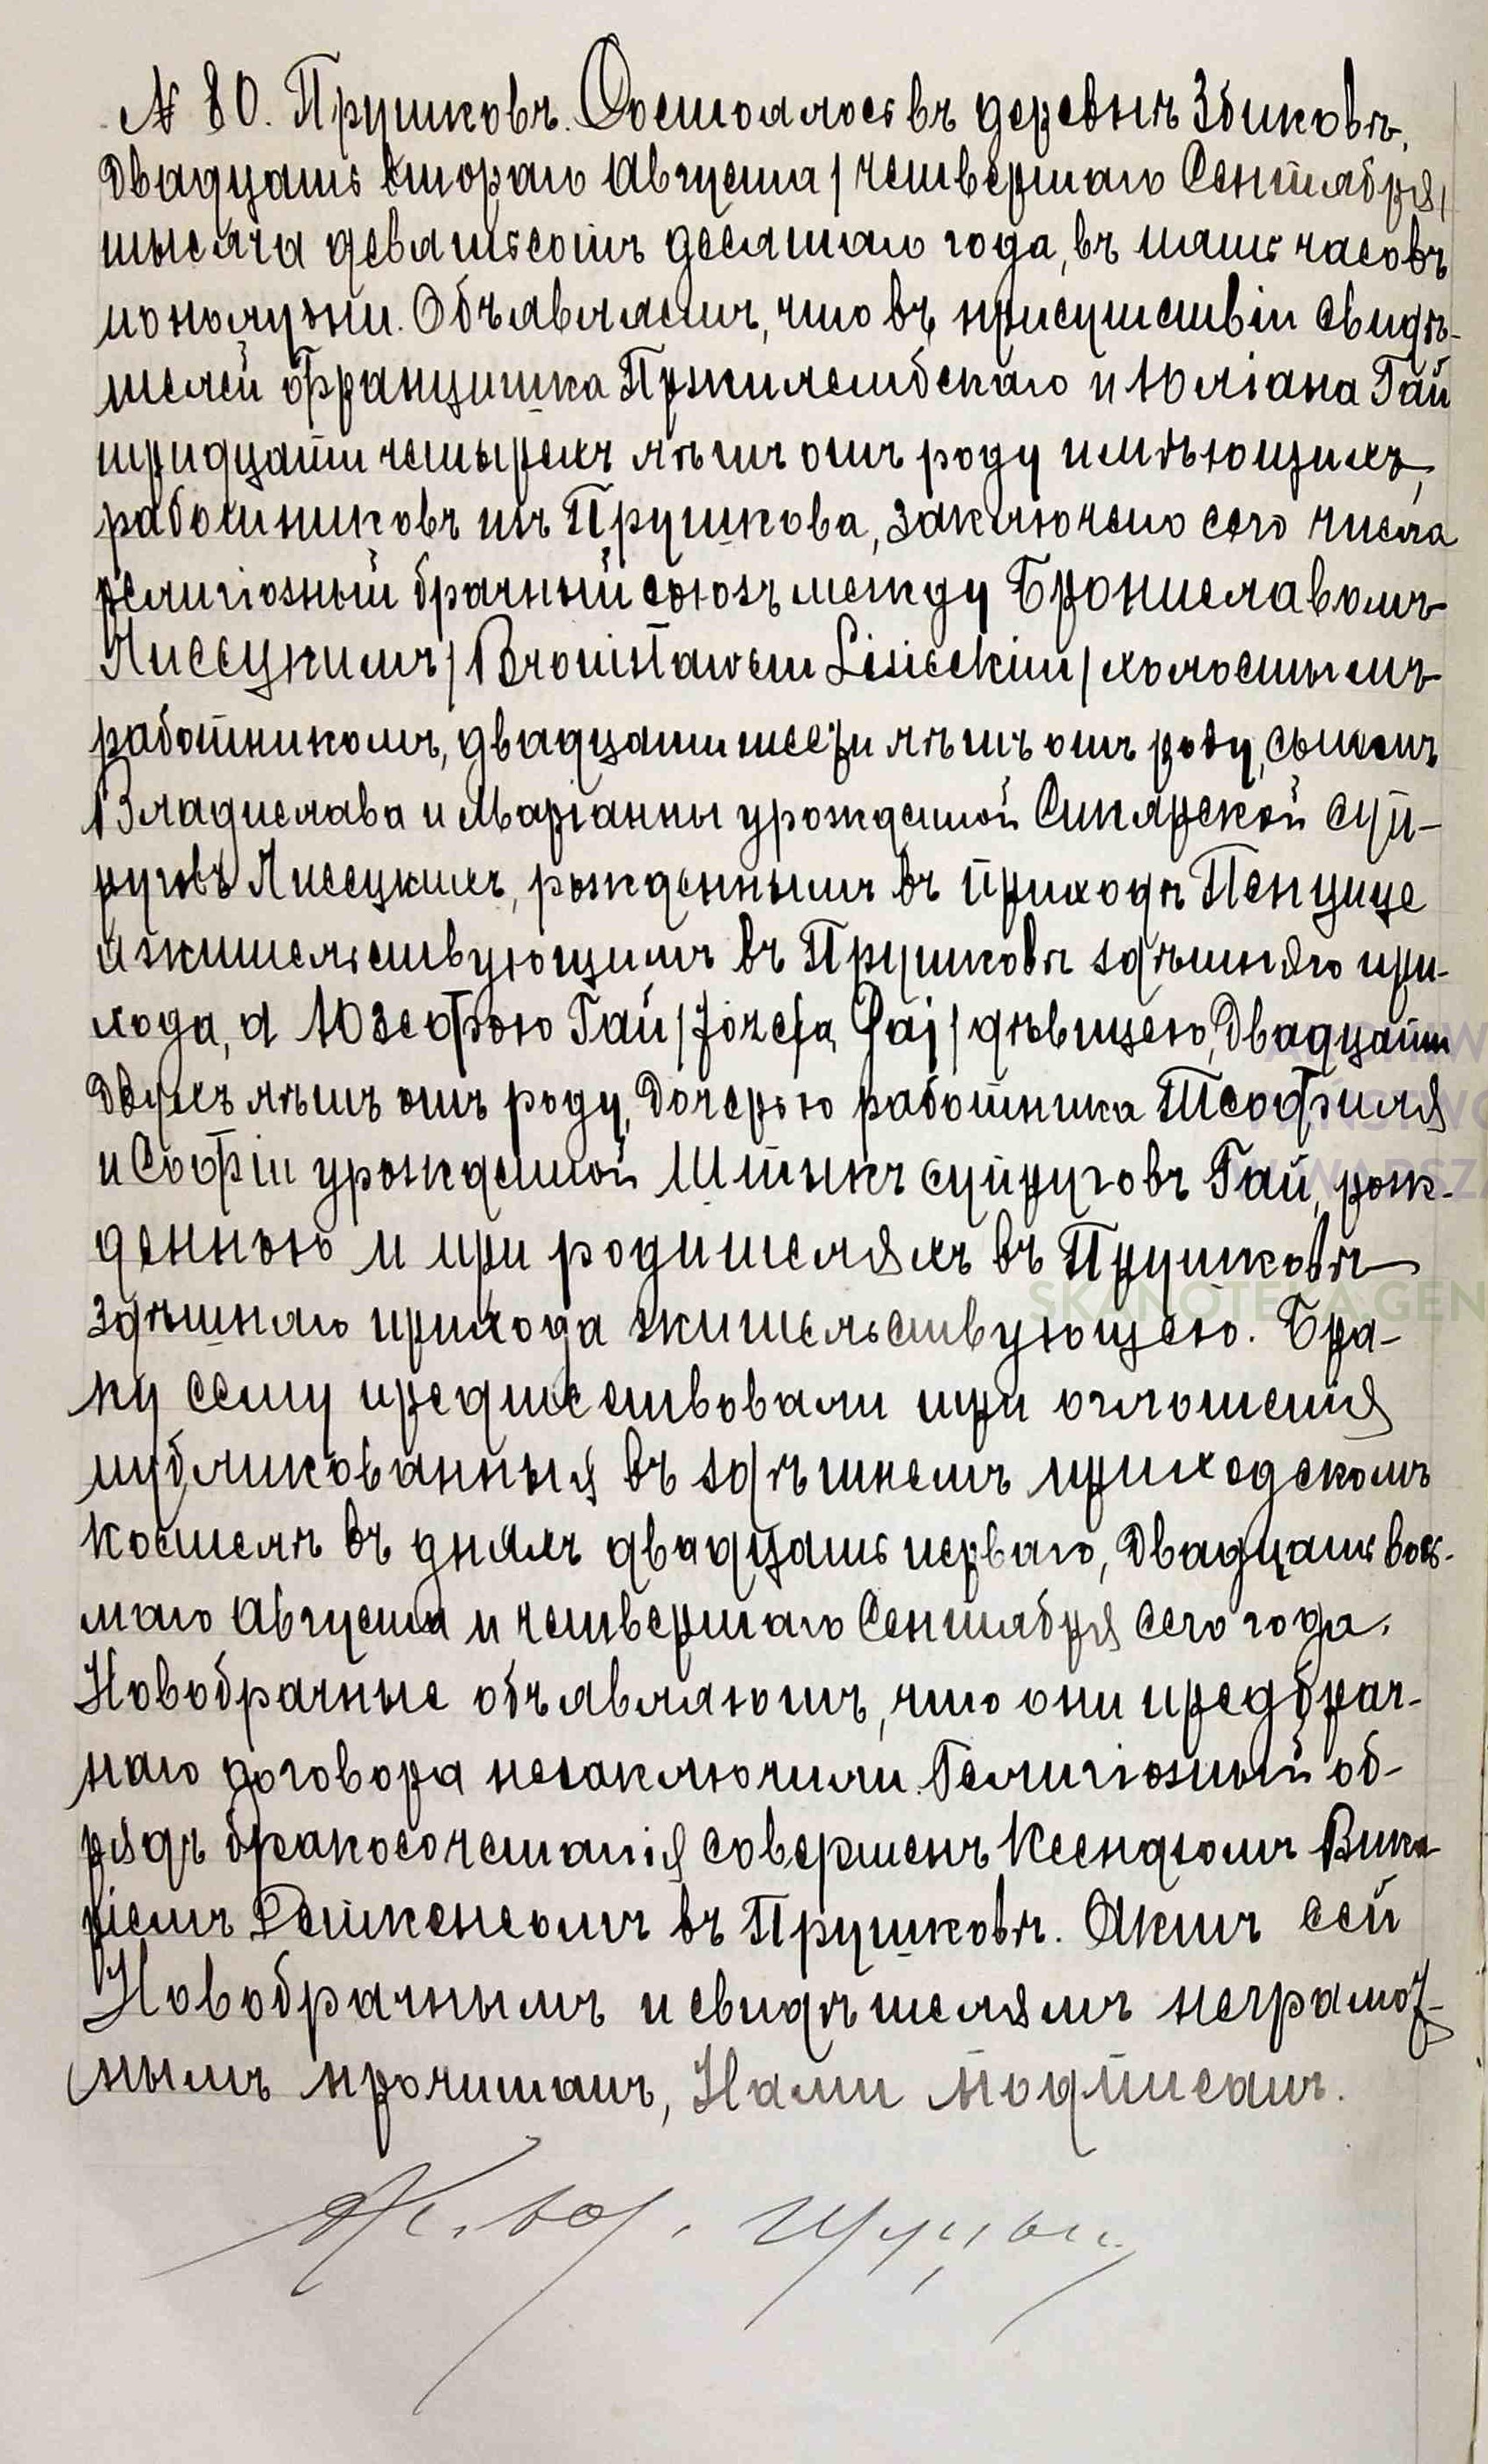 № 80. Прушковъ. Состоялось въ деревнѣ Збиковѣ,
двадцать второго Августа /четвертаго Сентября/
тысяча девятьсотъ десятаго года, въ пять часовъ
пополудни. Объявляемъ, что въ присутствіи свидѣ-
телей Францишка Пржилембскаго и Юліана Гай
тридцати четырехъ лѣтъ отъ роду имѣющихъ,
работниковъ изъ Прушкова, заключено сего числа
религіозный брачный союзъ между Брониславомъ
Лисецкимъ /Bronisławem Lisieckim/ холостымъ
работникомъ, двадцати шести лѣтъ отъ роду, сыномъ
Владислава и Маріанны урожденной Сикарской суп-
руговъ Лисецкихъ, рожденнымъ въ приходѣ Пенцице
а жительствующимъ въ Прушковѣ здѣшняго при-
хода, а Юзефою Гай /Józefa Gaj/ дѣвицею, двадцати
двухъ лѣтъ отъ роду, дочерью работника Теофиля
и Софіи урожденной супруговъ Гай, рож-
денною и при родителяхъ въ Прушковѣ
здѣшняго прихода жительствующею. Бра-
ку сему предшествовали три оглошенія
публикованныя въ здѣшнемъ приходскомъ
костелѣ въ дняхъ двадцать перваго, двадцать вось-
маго Августа и четвертаго Сентября сего года.
Новобрачные объявляютъ, что они предбрач-
наго договора незаключили. Религіозный об-
рядъ бракосочетанія совершенъ Ксендзомъ Вика-
ріемъ въ Прушковѣ. Актъ сей
Новобрачнымъ и свидѣтелямъ неграмот-
нымъ прочитанъ, Нами подписанъ.